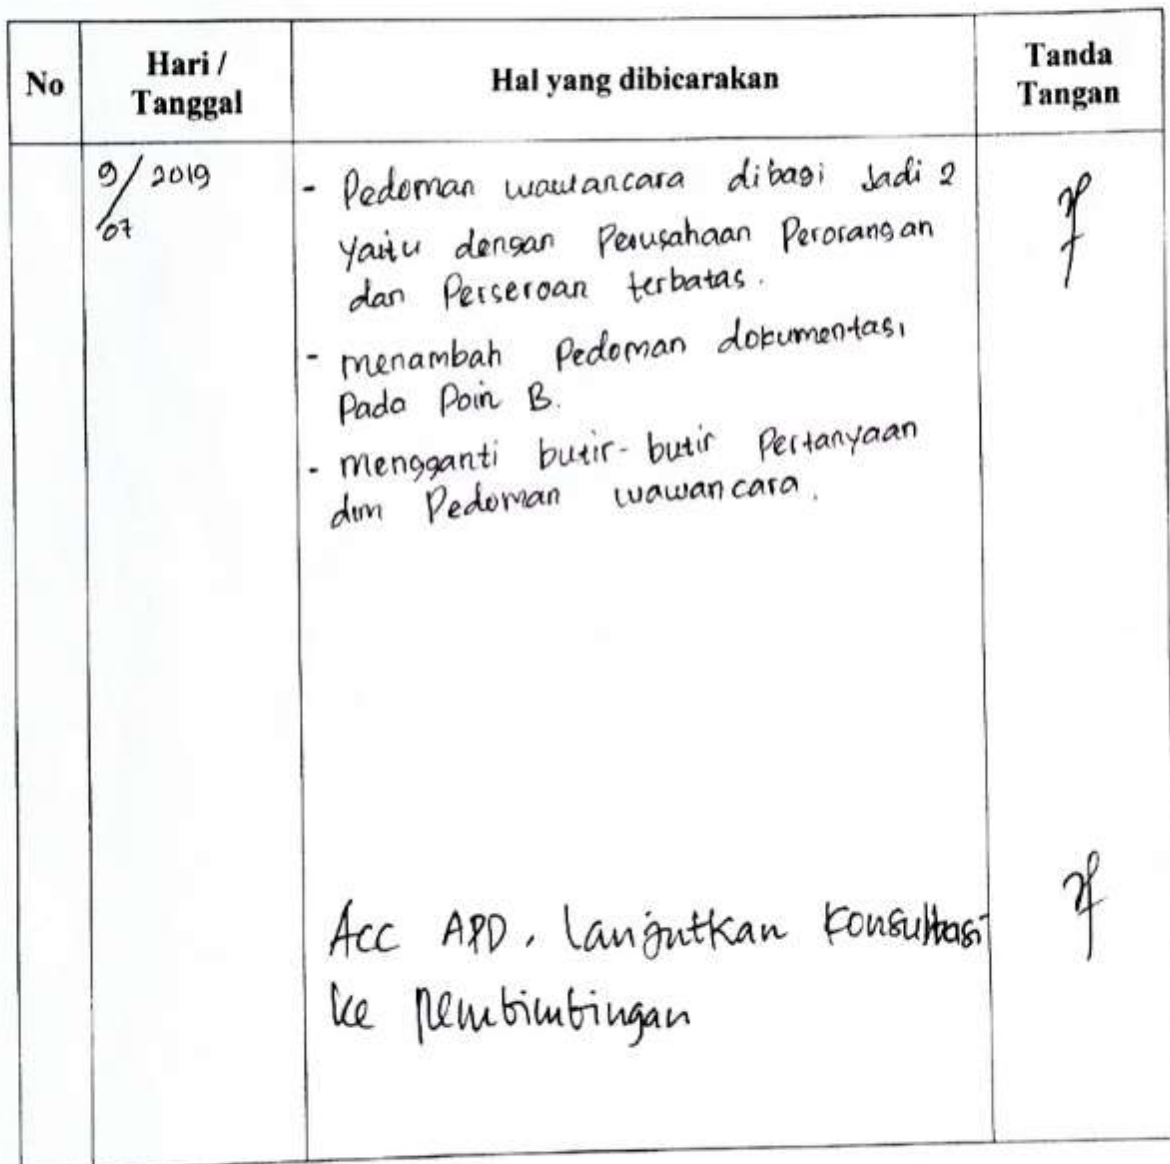 No
Hari /
Tanggal
Hal yang dibicarakan
Tanda
Tangan
9/07 2019
- Pedoman wawancara dibagi Jadi 2
Yaitu dengan Perusahaan Perorangan
dan Perseroan terbatas.
- menambah Pedoman dokumentasi
Pada Poin B.
- mengganti butir-butir Pertanyaan
dlm Pedoman wawancara.
Acc APD, lanjutkan konsultasi
ke pembimbingan